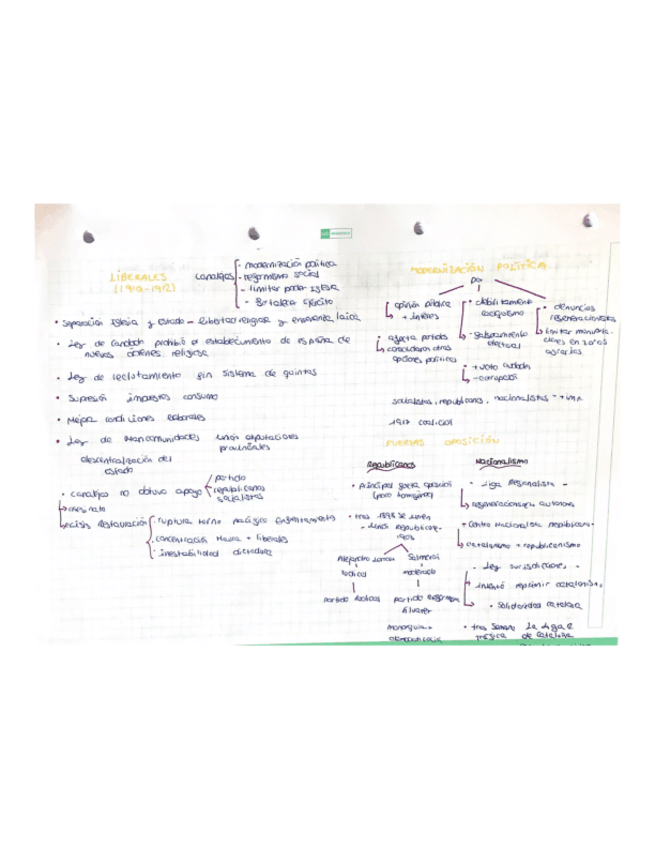 LIBERALES
(1910-1912)
Canalejas
- modernización política
- reformismo social
- limitar poder Iglesia
- Fortalecer Ejército
• Separación Iglesia y Estado - libertad religiosa y enseñanza laica
• Ley de Candado prohibió el establecimiento de España de
nuevas órdenes religiosa
• Ley de reclutamiento sin sistema de quintas
• Supresión impuestos consumo
• Mejor condiciones laborales
• Ley de Mancomunidades unión diputaciones
provinciales
descentralización del
estado
• Canalejas no obtuvo apoyo
partido
republicanos
socialistas
crisis Restauración
ruptura turno pacífico enfrentamiento
concentración Maura + liberales
inestabilidad dictadura
MODERNIZACIÓN POLÍTICA
por
opinión pública
+ interés
• debilitamiento
caciquismo
• denuncias
regeneracionistas
• afecta partido
consolidaron otras
opciones políticas
- falseamiento
electoral
limitar
en zonas
agrarias
• + voto ciudad
- corrupción
socialistas, republicanos, nacionalistas
1917 coalición
FUERZAS OPOSICIÓN
Republicanos
Nacionalismo
• Principal fuerza oposición
(poco homogénea)
• tras 1898 se unen
- Unión Republicana-
1903
Alejandro Lerroux
Salmerón
radical
moderado
Partido Radical
partido
Álvarez
- Liga Regionalista -
regeneracionismo autonomía
• Centro Nacionalista Republicano-
catalanismo + republicanismo
- Ley jurisdicciones -
intentó reprimir catalanismo
• Solidaridad catalana
• tras Semana
trágica de Cataluña